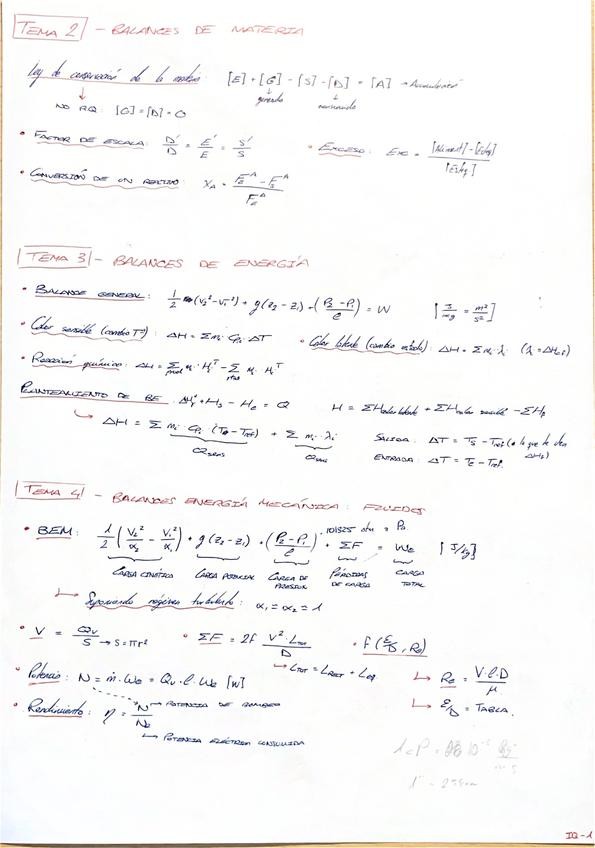 TEMA 2 - BALANCES DE MATERIA
Ley de conservación de la materia [E] + [G] - [S] - [D] = [A] → Acumulación
↓ generado ↓
NO RQ: [G]=[D]=0
• FACTOR DE ESCALA: D'/D = E'/E = S'/S • EXCESO: Exc = ([Aliment] - [Esteq])/[Esteq]
• CONVERSIÓN DE UN REACTIVO: X_A = (F_E^A - F_S^A)/F_E^A
TEMA 3 - BALANCES DE ENERGÍA
• BALANCE GENERAL: 1/2 (V₂² - V₁²) + g(z₂ - z₁) + (P₂ - P₁)/ρ = W [J/kg = m²/s²]
• Calor sensible (cambio Tª): ΔH = Σ mᵢ · Cpᵢ · ΔT • Calor latente (cambio estado): ΔH = Σ mᵢ · λᵢ
• Reacción química: ΔH = Σ_prod nᵢ · Hᵢ^T - Σ nᵢ · Hᵢ^T
PLANTEAMIENTO DE BE: + H_S - H_E = Q H = ΣH calor latente + ΣH calor sensible - ΣH_R
↳ ΔH = Σ mᵢ · Cpᵢ (T - Tref) + Σ mᵢ · λᵢ SALIDA: ΔT = T_S - Tref
Q sens ENTRADA: ΔT = T_E - Tref
TEMA 4 - BALANCES ENERGÍA MECÁNICA: FLUIDOS
101325 atm = Pa
• BEM: 1/2 (V₂²/α₂ - V₁²/α₁) + g(z₂ - z₁) + (P₂ - P₁)/ρ + ΣF = We [J/kg]
CARGA CINÉTICA CARGA POTENCIAL CARGA DE PRESIÓN PÉRDIDAS DE CARGA CARGA TOTAL
↳ Suponiendo régimen turbulento: α₁ = α₂ = 1
• V = Qv/S → S = πr² • ΣF = 2f V² · Ltot/D • f(ε/D, Re)
↳ Ltot = Lrect + Leq
• Potencia: N = ṁ · We = Qv · ρ · We [W] ↳ Re = V·ρ·D/μ
• Rendimiento: η = N/Ne → POTENCIA DE BOMBEO ↳ ε/D = TABLA.
↳ POTENCIA ELÉCTRICA CONSUMIDA
IQ-1